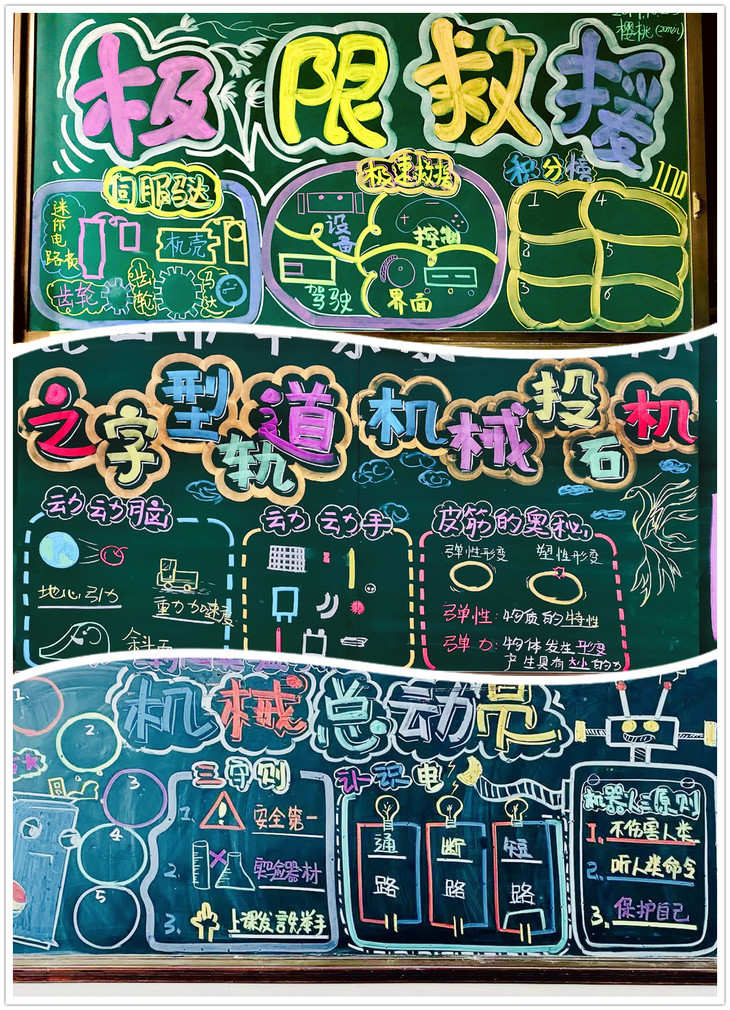 樱桃(20min)
极限救援
伺服马达
迷你电路板
机壳
齿轮
齿轮
马达
极速救援
设备
控制
驾驶
界面
积分榜
100
1
4
2
5
3
6
之字型轨道机械投石机
动动脑
地心引力
重力加速度
斜面
动动手
皮筋的奥秘
弹性形变
塑性形变
弹性:物质的特性
弹力:物体发生形变
产生具有大小的力
机械总动员
1.
2.
3
4
5
三字则
1.
安全第一
2.
实验器材
3.
上课发言先举手
认识电
通路
断路
短路
机器人三原则
1.不伤害人类
2.听人类命令
3.保护自己